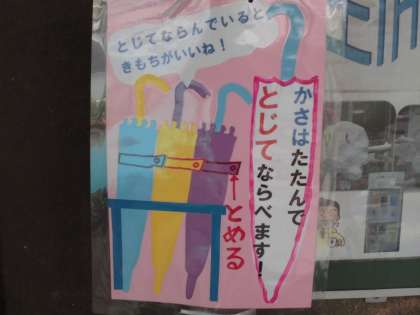 とじてならんでいると
きもちがいいね!
かさはたたんで
とじてならべます!
とめる